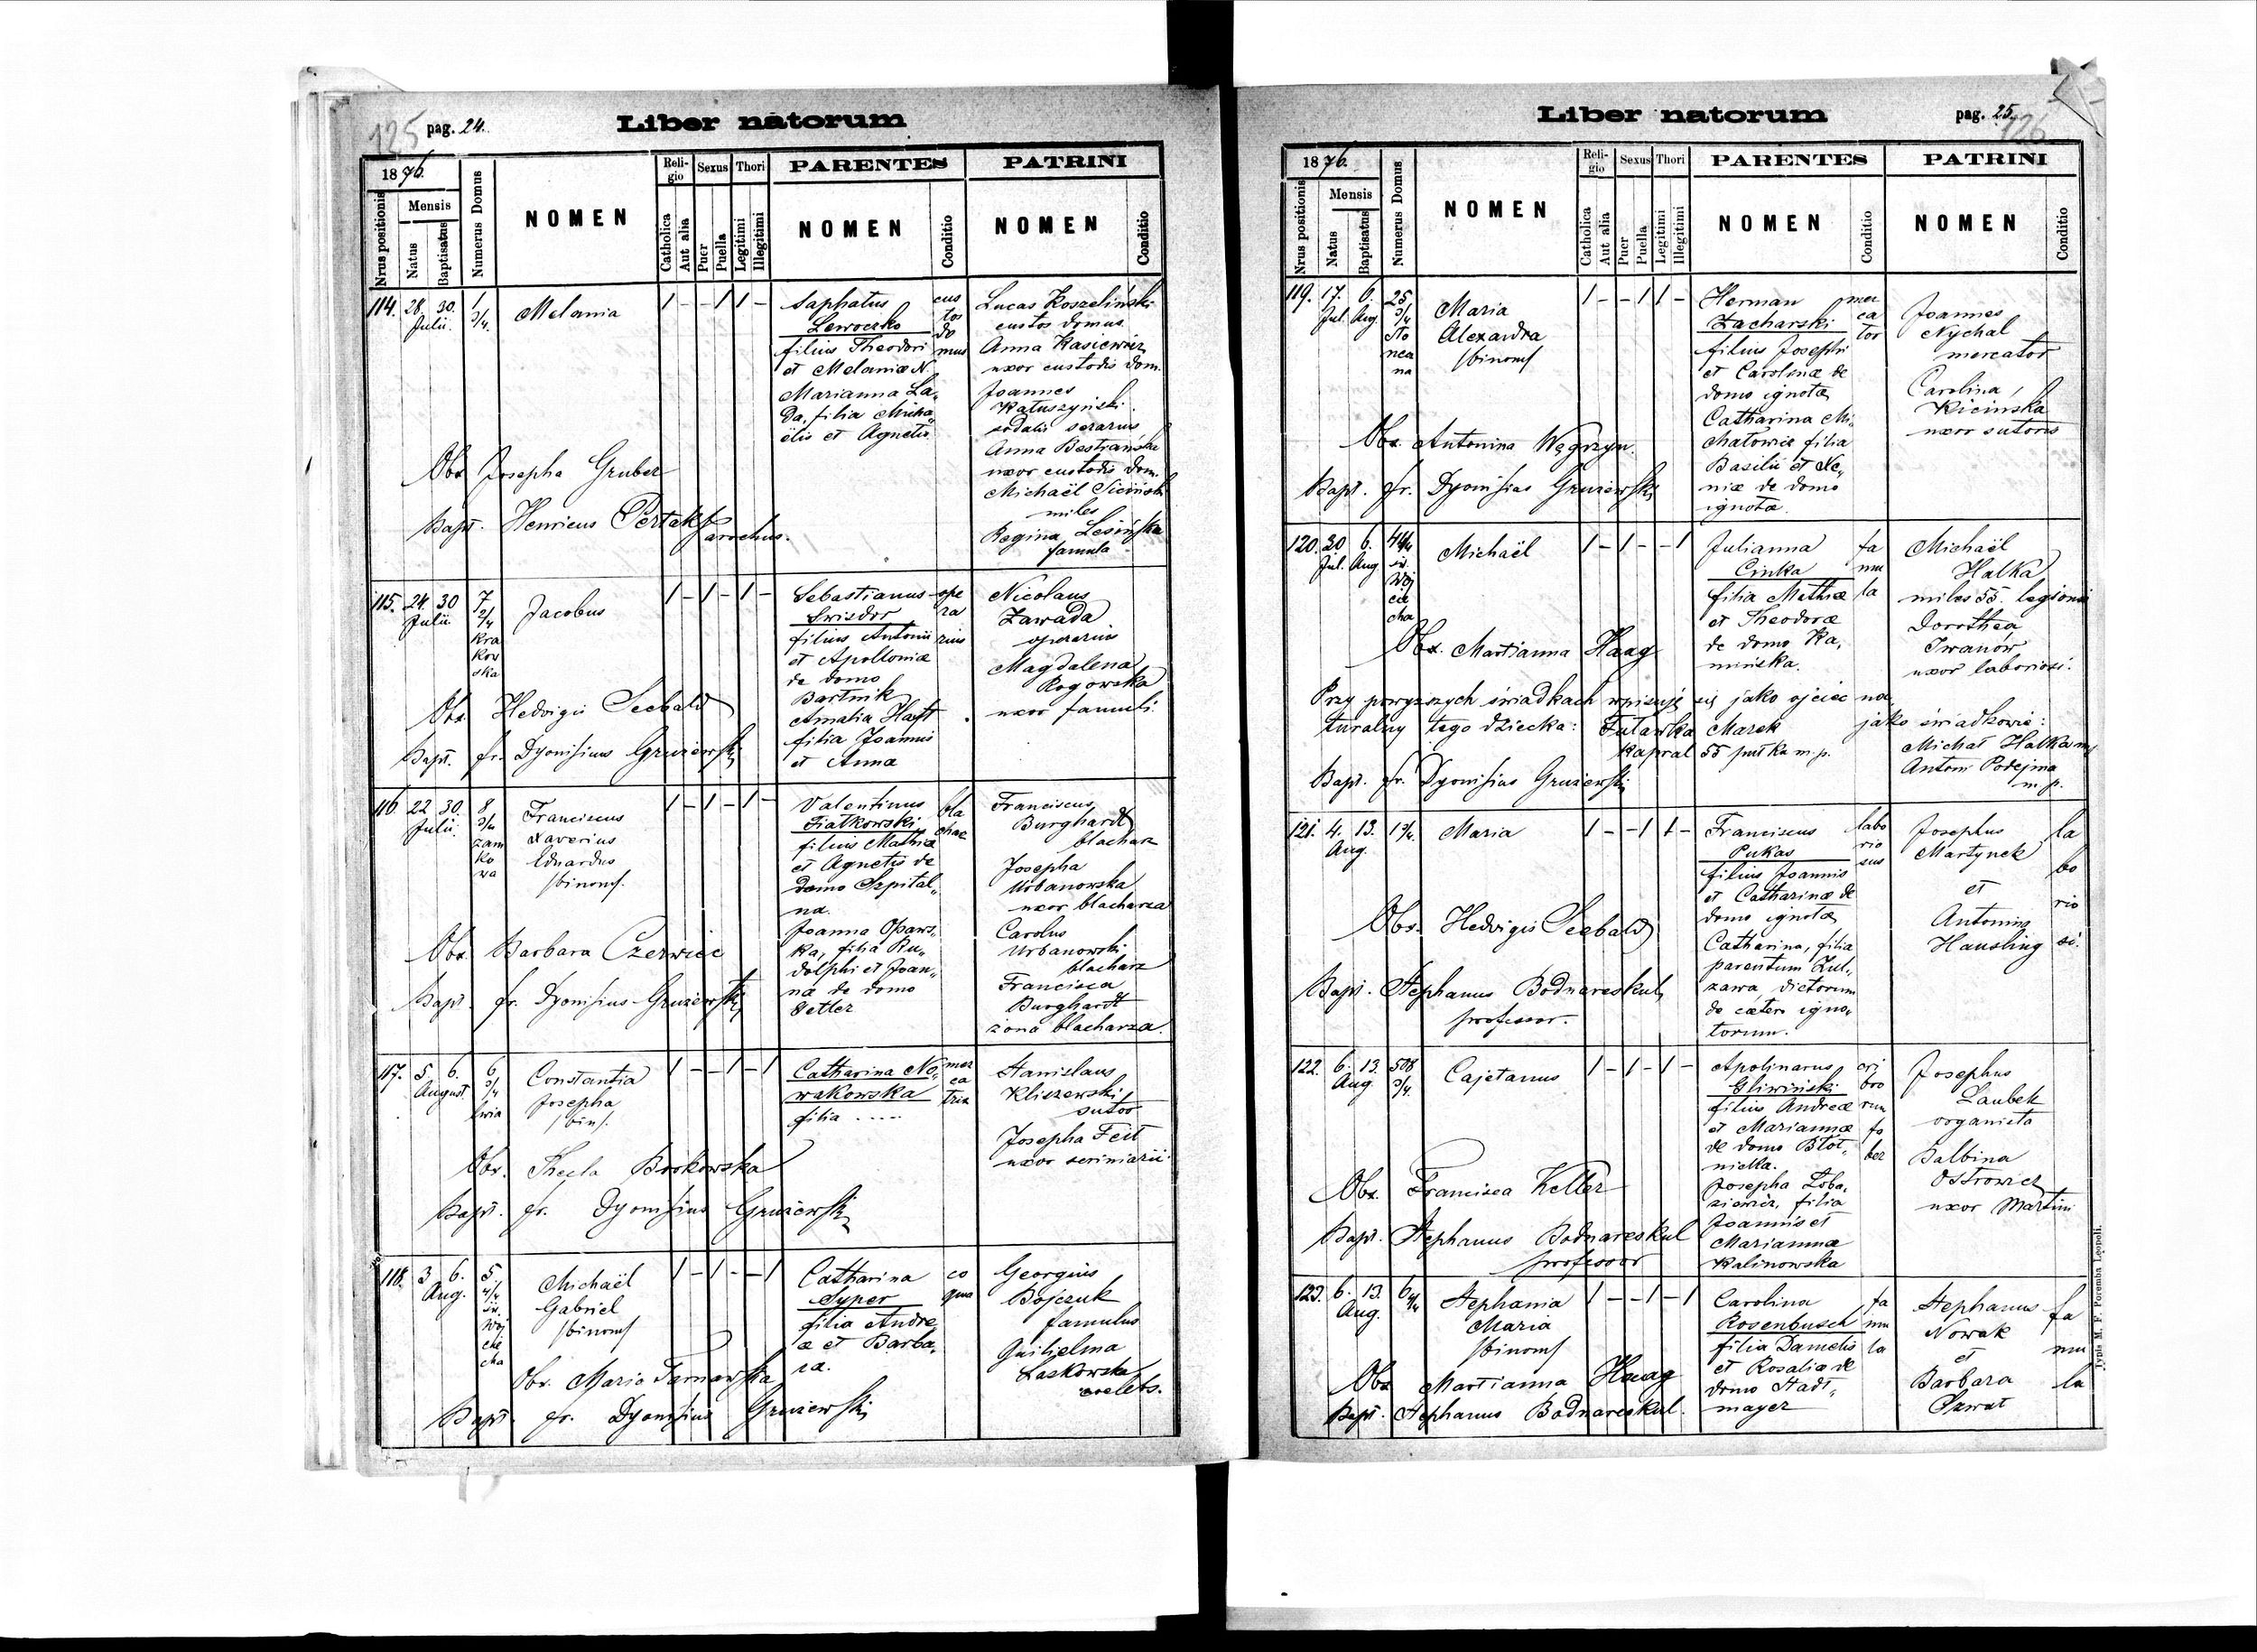 125 pag. 24. Liber natorum
1876.
Nrus positionis
Mensis
Natus
Baptisatus
Numerus Domus
NOMEN
Religio
Catholica
Aut alia
Sexus
Puer
Puella
Thori
Legitimi
Illegitimi
PARENTES
NOMEN
Conditio
PATRINI
NOMEN
Conditio
114. 28. 30. Julii. 1 3/4.
Melania
1 - - 1 1 -
Saphatus
Lewoczko
filius Theodori
et Melaniæ N.
Marianna La„
da, filia Micha„
ëlis et Agnetis.
cus
tos
do
mus
Lucas Koszeliński
custos domus.
Anna Kasiewicz
uxor custodis dom.
Joannes
Katuszyński
sodalis serarius
Anna Bestrańska
uxor custodis dom.
Michaël Siciński
miles
Regina Lesińska
famula
Obs. Josepha Gruber
Bapt. Henricus Pertak
parochus.
115. 24. 30 Julii
7
2/4
Kra
kow
ska
Jacobus
1 - 1 - 1 -
Sebastianus
Swisdor
filius Antonii
et Apolloniæ
de domo
Bartnik
Amalia Haft
filia Joannis
et Anna
ope
ra
rius
Nicolaus
Zawada
operarius
Magdalena
Rogowska
uxor famuli.
Obs. Hedvigis Seebald
Bapt. fr. Dyonisius Grużewski
116. 22. 30. Julii.
8
3/4
zam
ko
wa
Franciscus
Xaverius
Eduardus
/binom/.
1 - 1 - 1 -
Valentinus
Fiałkowski
filius Mathiæ
et Agnetis de
domo Szpital„
na.
Joanna Opaws„
ka, filia Ru„
dolphi et Joan„
næ de domo
Setler
bla
charz
Franciscus
Burghardt
blacharz
Josepha
Urbanowska
uxor blacharza
Carolus
Urbanowski
blacharz
Francisca
Burghardt
żona blacharza.
Obs. Barbara Czerwiec
Bapt. fr. Dyonisius Grużewski
117. 5. 6. August.
6
3/4
Constantia
Josepha
/bin/.
1 - - 1 - 1
Catharina No„
wakowska
filia .....
mer
ca
trix
Stanislaus
Kliszewski
sutor
Josepha Feit
uxor scriniarii.
Obs. Thecla Borkowska
Bapt. fr. Dyonisius Grużewski
118. 3 6. Aug.
5
4/4
św.
Woj
cie
cha
Michaël
Gabriel
/binom/
1 - 1 - - 1
Catharina
Syper
filia Andre
æ et Barba„
ra.
co
qua
Georgius
Bojczuk
famulus
Guilielma
Laskowska
coelebs.
Obs. Maria Tarnawska
Bapt. fr. Dyonisius Grużewski
Liber natorum pag. 25. 126
1876.
Nrus positionis
Mensis
Natus
Baptisatus
Numerus Domus
NOMEN
Religio
Catholica
Aut alia
Sexus
Puer
Puella
Thori
Legitimi
Illegitimi
PARENTES
NOMEN
Conditio
PATRINI
NOMEN
Conditio
119. 17. 6. Jul. Aug
25
3/4
sło
nea
na
Maria
Alexandra
/binom/
1 - - 1 1 -
Herman
Zacharski
filius Josephi
et Carolinæ de
domo ignota
Catharina Mi„
chatowicz filia
Basilii et Xe„
niæ de domo
ignota.
mer
ca
tor
Joannes
Nychal
mercator
Carolina
Kicinska
uxor sutoris
Obs. Antonina Węgrzyn.
Bapt. fr. Dyonisius Grużewski
120. 30 6. Jul. Aug
44/4
św.
Woj
cie
cha
Michaël
1 - 1 - - 1
Julianna
Cinka
filia Mathiæ
et Theodoræ
de domo Ka„
mińska.
fa
mu
la
Michaël
Halka
miles 55. legionis
Dorothea
Iwanów
uxor laboriosi.
Obs. Martianna Haag
Przy powyższych świadkach wpisuję się jako ojciec na„
turalny tego dziecka: Futawka Marek jako świadkowie:
kapral 55 pułku m.p. Michał Halka mp
Antoni Podejma
m.p.
Bapt. fr. Dyonisius Grużewski
121. 4. 13. Aug. 1 3/4.
Maria
1 - - 1 1 -
Franciscus
Pukas
filius Joannis
et Catharinæ de
domo ignota
Catharina, filia
parentum Zul„
zawa, dictorum
de cætero igno„
torum.
labo
rio
sus
Josephus
Martynek
et
Antonius
Hausling
la
bo
rio
si.
Obs. Hedvigis Seebald
Bapt. Stephanus Bodnareskul,
professor.
122. 6. 13. Aug. 508 3/4.
Cajetanus
1 - 1 - 1 -
Apolinarus
Gliwiński
filius Andreæ
et Mariannæ
de domo Błot„
nicka.
Josepha Łoba„
ziewicz, filia
Joannis et
Marianna
Kalinowska
cri
bro
rum
fa
ber
Josephus
Laubek
organista
Balbina
Ostrowicz
uxor Martini
Obs. Francisca Keller
Bapt. Stephanus Bodnareskul
professor
123. 6. 13. Aug. 6 4/4
Stephania
Maria
/binom/
1 - - 1 - 1
Carolina
Rosenbusch
filia Danielis
et Rosaliæ de
domo Stadt„
mayer
fa
mu
la
Stephanus
Nowak
et
Barbara
fa
mu
la
Obs. Martianna Haag
Bapt. Stephanus Bodnareskul.
Typis M. F. Poremba Leopoli.